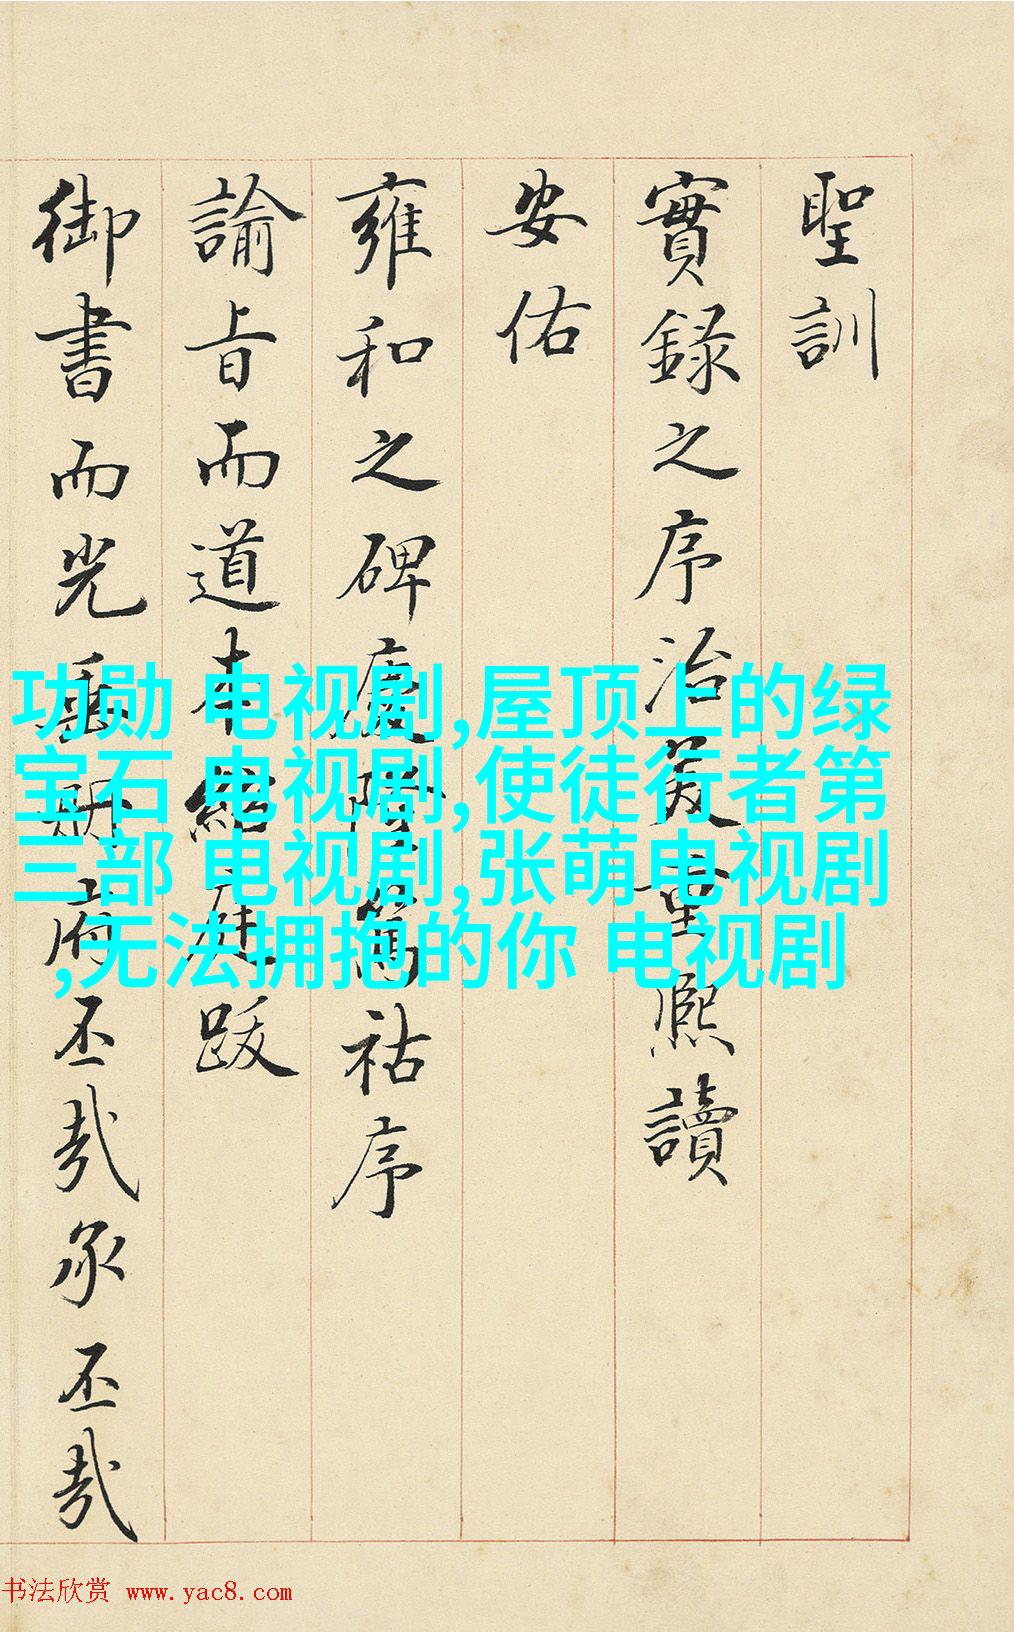 聖訓
實録之序治重熙讀
安佑
雍和之碑慶隆篤祜序
諭旨而道本紹庭跋
御書而光垂册府丕哉承丕哉
功勋 电视剧,屋顶上的绿
宝石 电视剧,使徒行者第
三部 电视剧,张萌电视剧
,无法拥抱的你 电视剧
书法欣赏 www.yac8.com